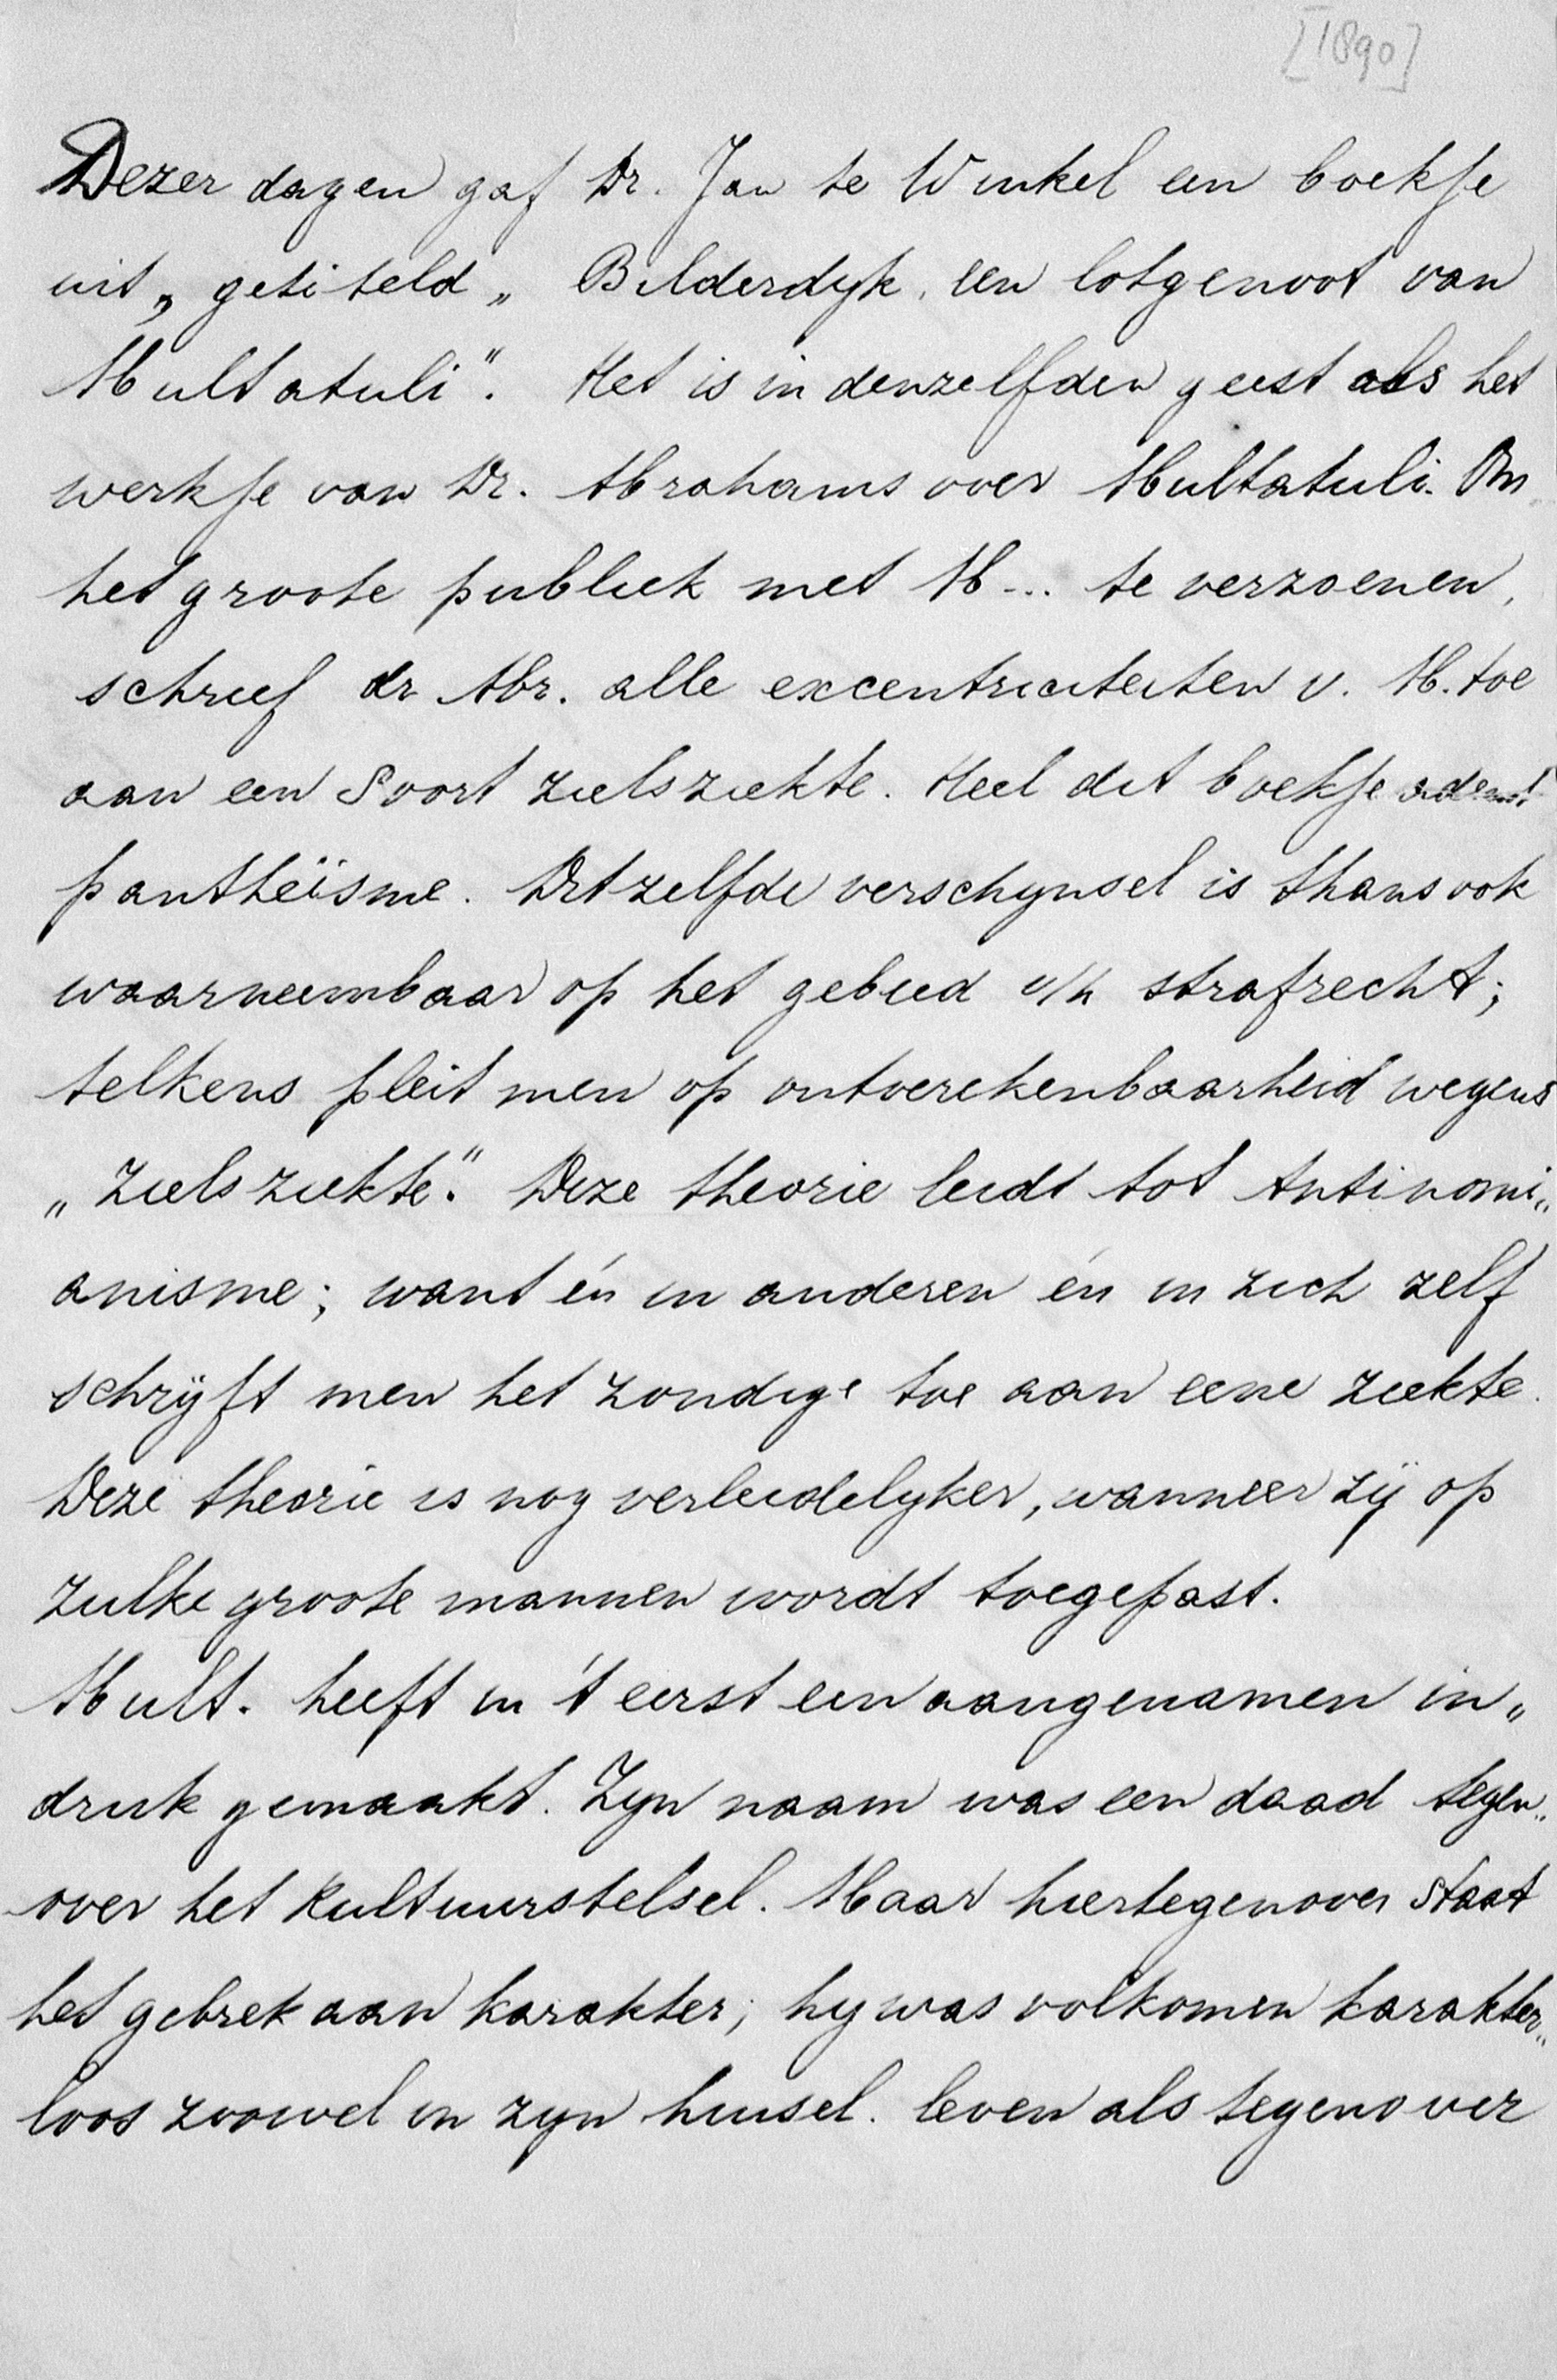 [1890]
Dezer dagen gaf Dr. Jan te Winkel een boekje
uit „ getiteld „ Bilderdyk, een lotgenoot van
Multatuli". Het is in denzelfden geest als het
werkje van Dr. Abrahams over Multatuli. Om
het groote publiek met M... te verzoenen,
schrief dr Abr. alle excentriciteiten v. M. toe
aan een soort zielsziekte. Heel dit boekje ademt
pantheïsme. Ditzelfde verschynsel is thans ook
waarneembaar op het gebied v/h strafrecht;
telkens pleit men op ontoerekenbaarheid wegens
„zielsziekte". Deze theorie leidt tot Antinomi„
anisme; want én in anderen én in zich zelf
schrijft men het zondige toe aan eene ziekte.
Deze theorie is nog verleidelyker, wanneer zij op
zulke groote mannen wordt toegepast.
Mult. heeft in 't eerst een aangenamen in„
druk gemaakt. Zyn naam was een daad tegen„
over het kultuurstelsel. Maar hiertegenover staat
het gebrek aan karakter; hy was volkomen karakter„
loos zoowel in zyn huisel. leven als tegenover